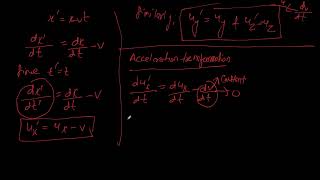 x' = x-vt
dx'/dt = dx/dt - v
t' = t
dx'/dt' = dx/dt - v
ux' = ux - v
Similarly,
uy' = uy + uz' = uz
Acceleration transformation
dux'/dt = dux/dt - dv/dt → 0
constant